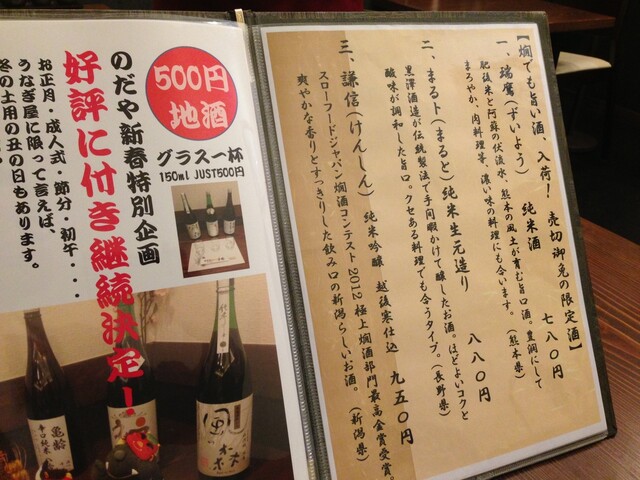 【燗でも旨い酒、入荷！ 売切御免の限定酒】
一、瑞鷹(ずいよう) 純米酒 七八〇円
肥後米と阿蘇の伏流水、熊本の風土が育む旨口酒。豊潤にして
まろやか、肉料理等、濃い味の料理にも合います。(熊本県)
二、まるト(まると) 純米生元造り 八八〇円
黒澤酒造が伝統製法で手間暇かけて醸したお酒。ほどよいコクと
酸味が調和した旨口。クセある料理でも合うタイプ。(長野県)
三、謙信(けんしん) 純米吟醸 越後寒仕込 九五〇円
スローフードジャパン燗酒コンテスト2012極上燗酒部門最高金賞受賞。
爽やかな香りとすっきりした飲み口の新潟らしいお酒。(新潟県)
500円
地酒
グラス一杯
150ml JUST500円
のだや新春特別企画
好評に付き継続決定！
お正月・成人式・節分・初午・・・
うなぎ屋に限って言えば、
冬の土用の丑の日もあります。
亀齢
辛口純米
風の森